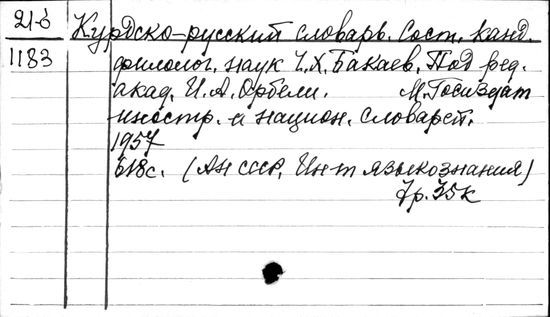 21-б
1183
Курдско-русский словарь. Сост. канд.
филолог. наук Ч.Х. Бакаев. Под ред.
акад. И.А. Орбели. М. Госиздат
иностр. и национ. словарей.
1957
618с. (АН СССР, Ин-т языкознания)
7р. 35к